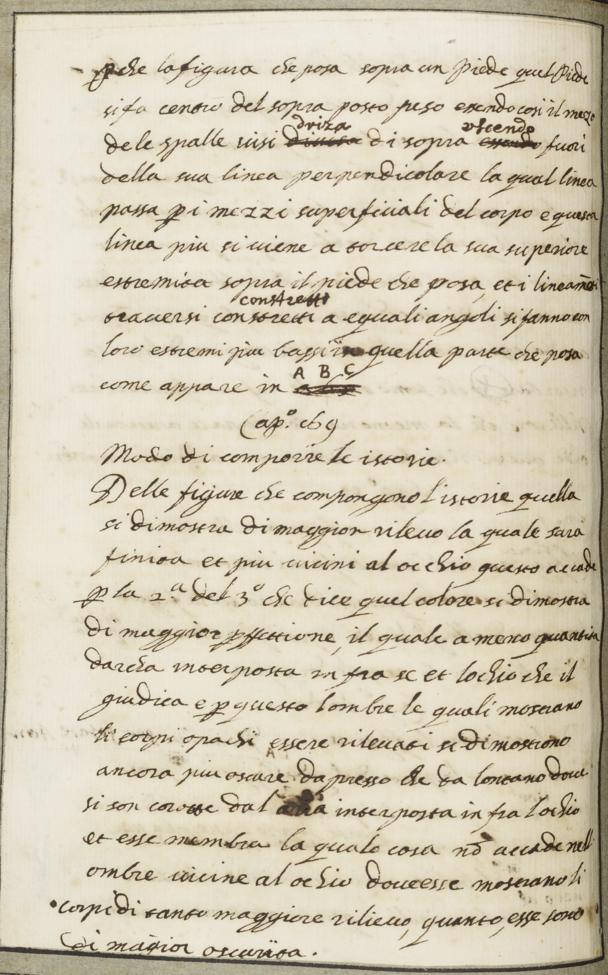 p che la figura che posa sopra un piede quel Piede
si fa centro del sopra posto peso essendo cosi il mezo
driza uscendo
dele spalle visi divisa di sopra essendo fuori
della sua linea perpendicolare la qual linea
passa p i mezzi superficiali del corpo e questa
linea piu si viene a torcere la sua superiore
estremita sopra il piede che posa, et i lineamēti
constretti
traversi constretti a equali angoli si fanno con
loro estremi piu bassi in quella parte che posa
A B C
come appare in
Cap.º ch9
Modo di comporre le istorie.
Delle figure che compongono l'istorie quella
si dimostra di maggior rilevo la quale sara
finita et piu vicini al occhio questo accade
p la 2.ª del 3º che dice quel colore si dimostra
di maggior pffettione, il quale a meno quantita
daria interposta in fra se et lochio che il
giudica e p questo lombre le quali mostrano
li corpi opachi essere rilevati si dimostrono
ancora piu oscure da presso che da lontano dove
si son corotte dal aria interposta in fra lochio
et esse membra la quale cosa nō accade nell
ombre vicine al ochio dove esse mostrano li
corpi di tanto maggiore rilievo, quanto, esse sono
di magior oscurita.